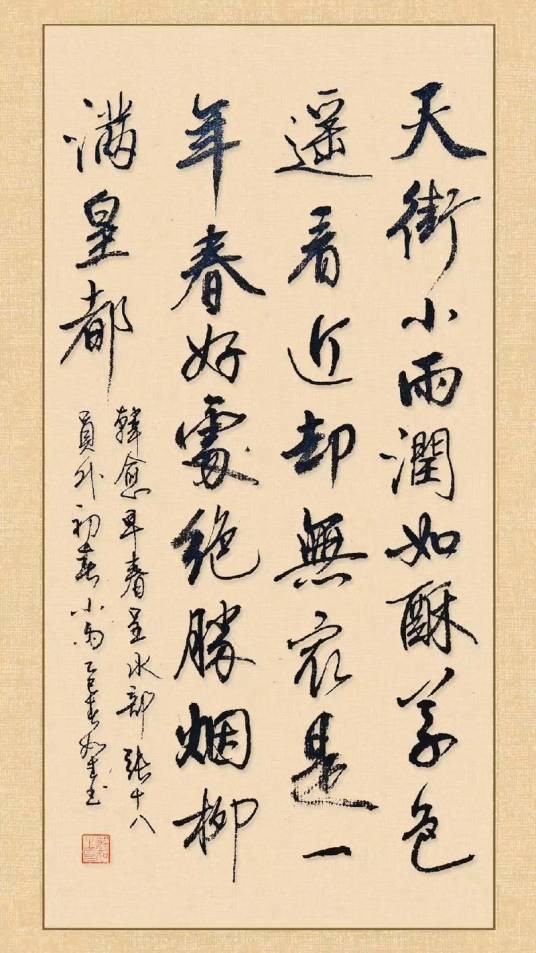 天街小雨潤如酥草色
遥看近却無冣是一
年春好處絶勝烟柳
满皇都
韓愈早春呈水部張十八
員外初春小雨乙巳春